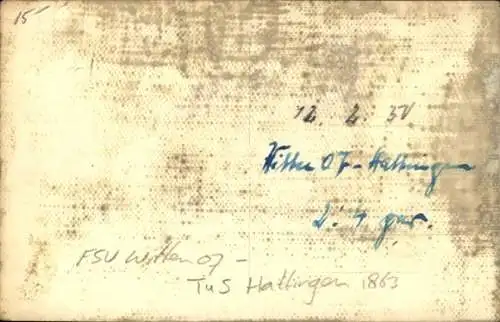 15
12. 2. 50
Witten 07 - Hattingen
2:4
FSV Witten 07 -
TuS Hattingen 1863